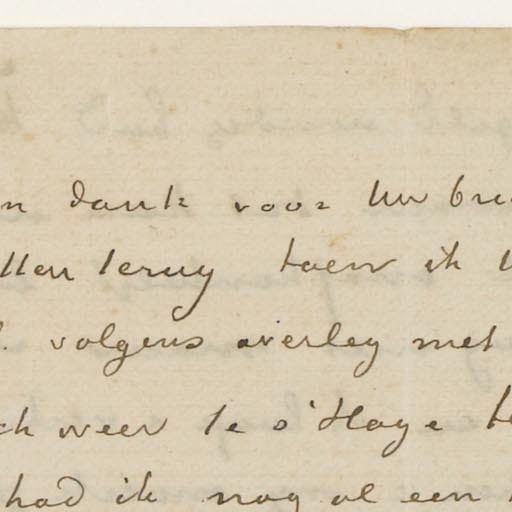 n dank voor Uw bri
tten terug toen ik U
volgens overleg met
ch weer te s' Hage te
had ik nog al een